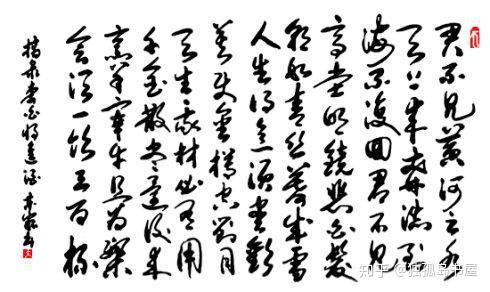 君不见黄河之水
天上来奔流到
海不复回君不见
高堂明镜悲白发
朝如青丝暮成雪
人生得意须尽欢
莫使金樽空对月
天生我材必有用
千金散尽还复来
烹羊宰牛且为乐
会须一饮三百杯
摘录李白将进酒
知乎 @独孤岛书屋